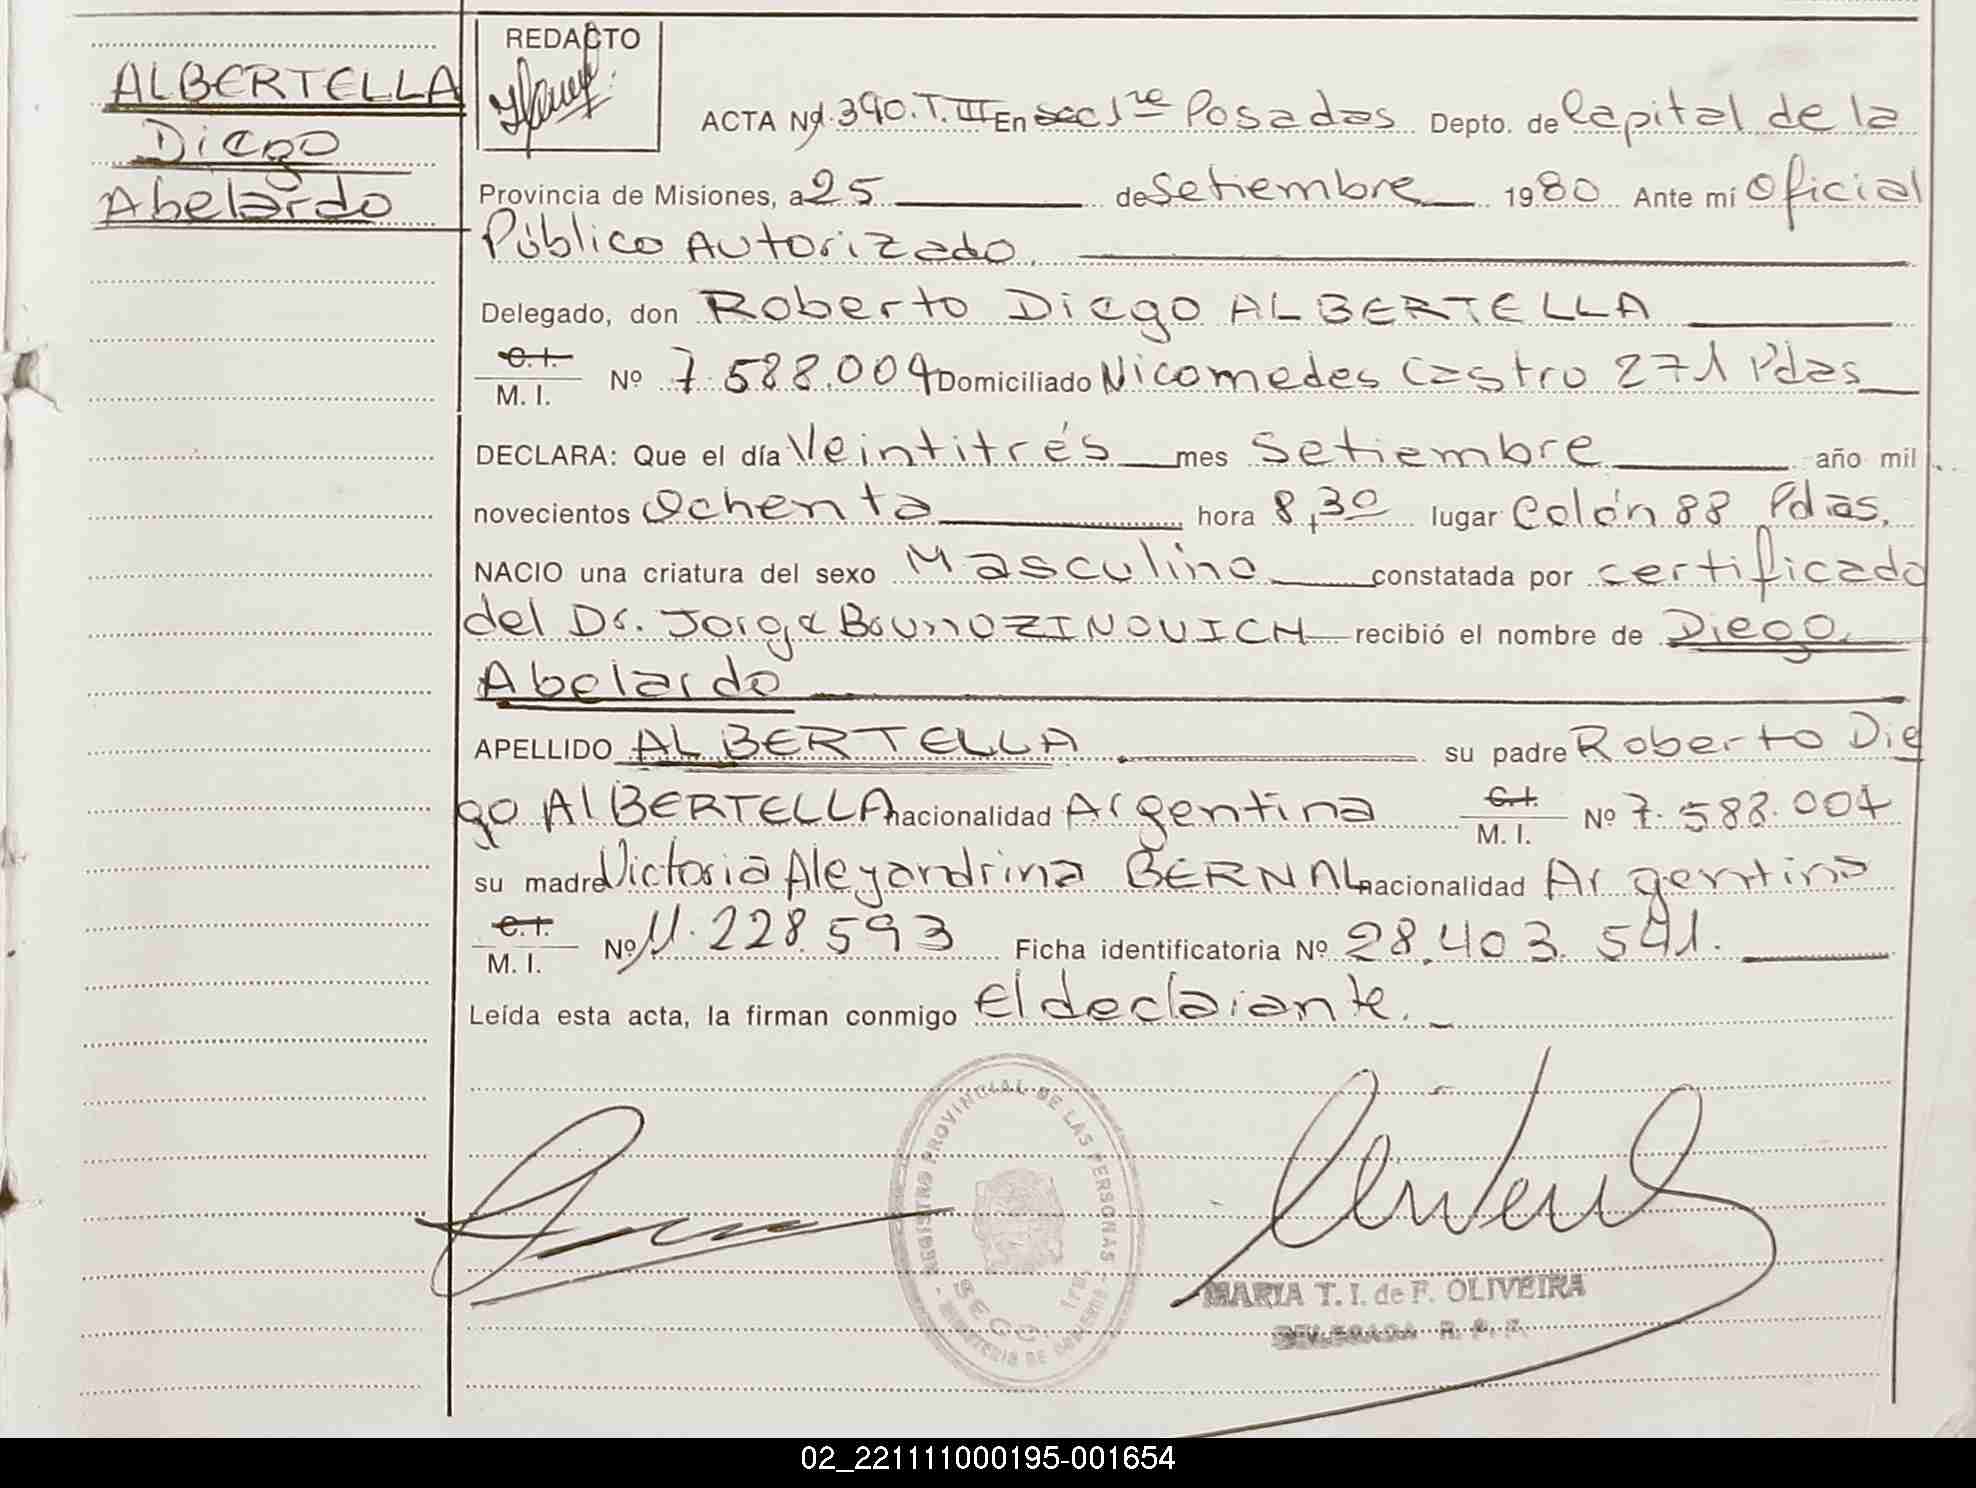 ALBERTELLA
Diego
Abelardo
REDACTO
ACTA Nº 390.T.III En secc 1ra Posadas Depto. de Capital de la
Provincia de Misiones, a 25 de Setiembre 1980 Ante mí Oficial
Público Autorizado
Delegado, don Roberto Diego ALBERTELLA
C.I.
M. I. Nº 7.588.004 Domiciliado Nicomedes Castro 271 Pdas
DECLARA: Que el día Veintitrés mes Setiembre año mil
novecientos Ochenta hora 8,30 lugar Colón 88 Pdas.
NACIO una criatura del sexo Masculino constatada por certificado
del Dr. Jorge Bruno ZINOVICH recibió el nombre de Diego
Abelardo
APELLIDO ALBERTELLA su padre Roberto Die
go AlBERTELLA nacionalidad Argentina C.I. M. I. Nº 7.588.004
su madre Victoria Aleyandrina BERNAL nacionalidad Argentina
C.I.
M. I. Nº 11.228.593 Ficha identificatoria Nº 28.403.541.
Leída esta acta, la firman conmigo el declarante.
REGISTRO PROVINCIAL DE LAS PERSONAS
SECC. 1ra.
MINISTERIO DE GOBIERNO
MARIA T. I. de F. OLIVEIRA
DELEGADA R. P. P.
02_221111000195-001654